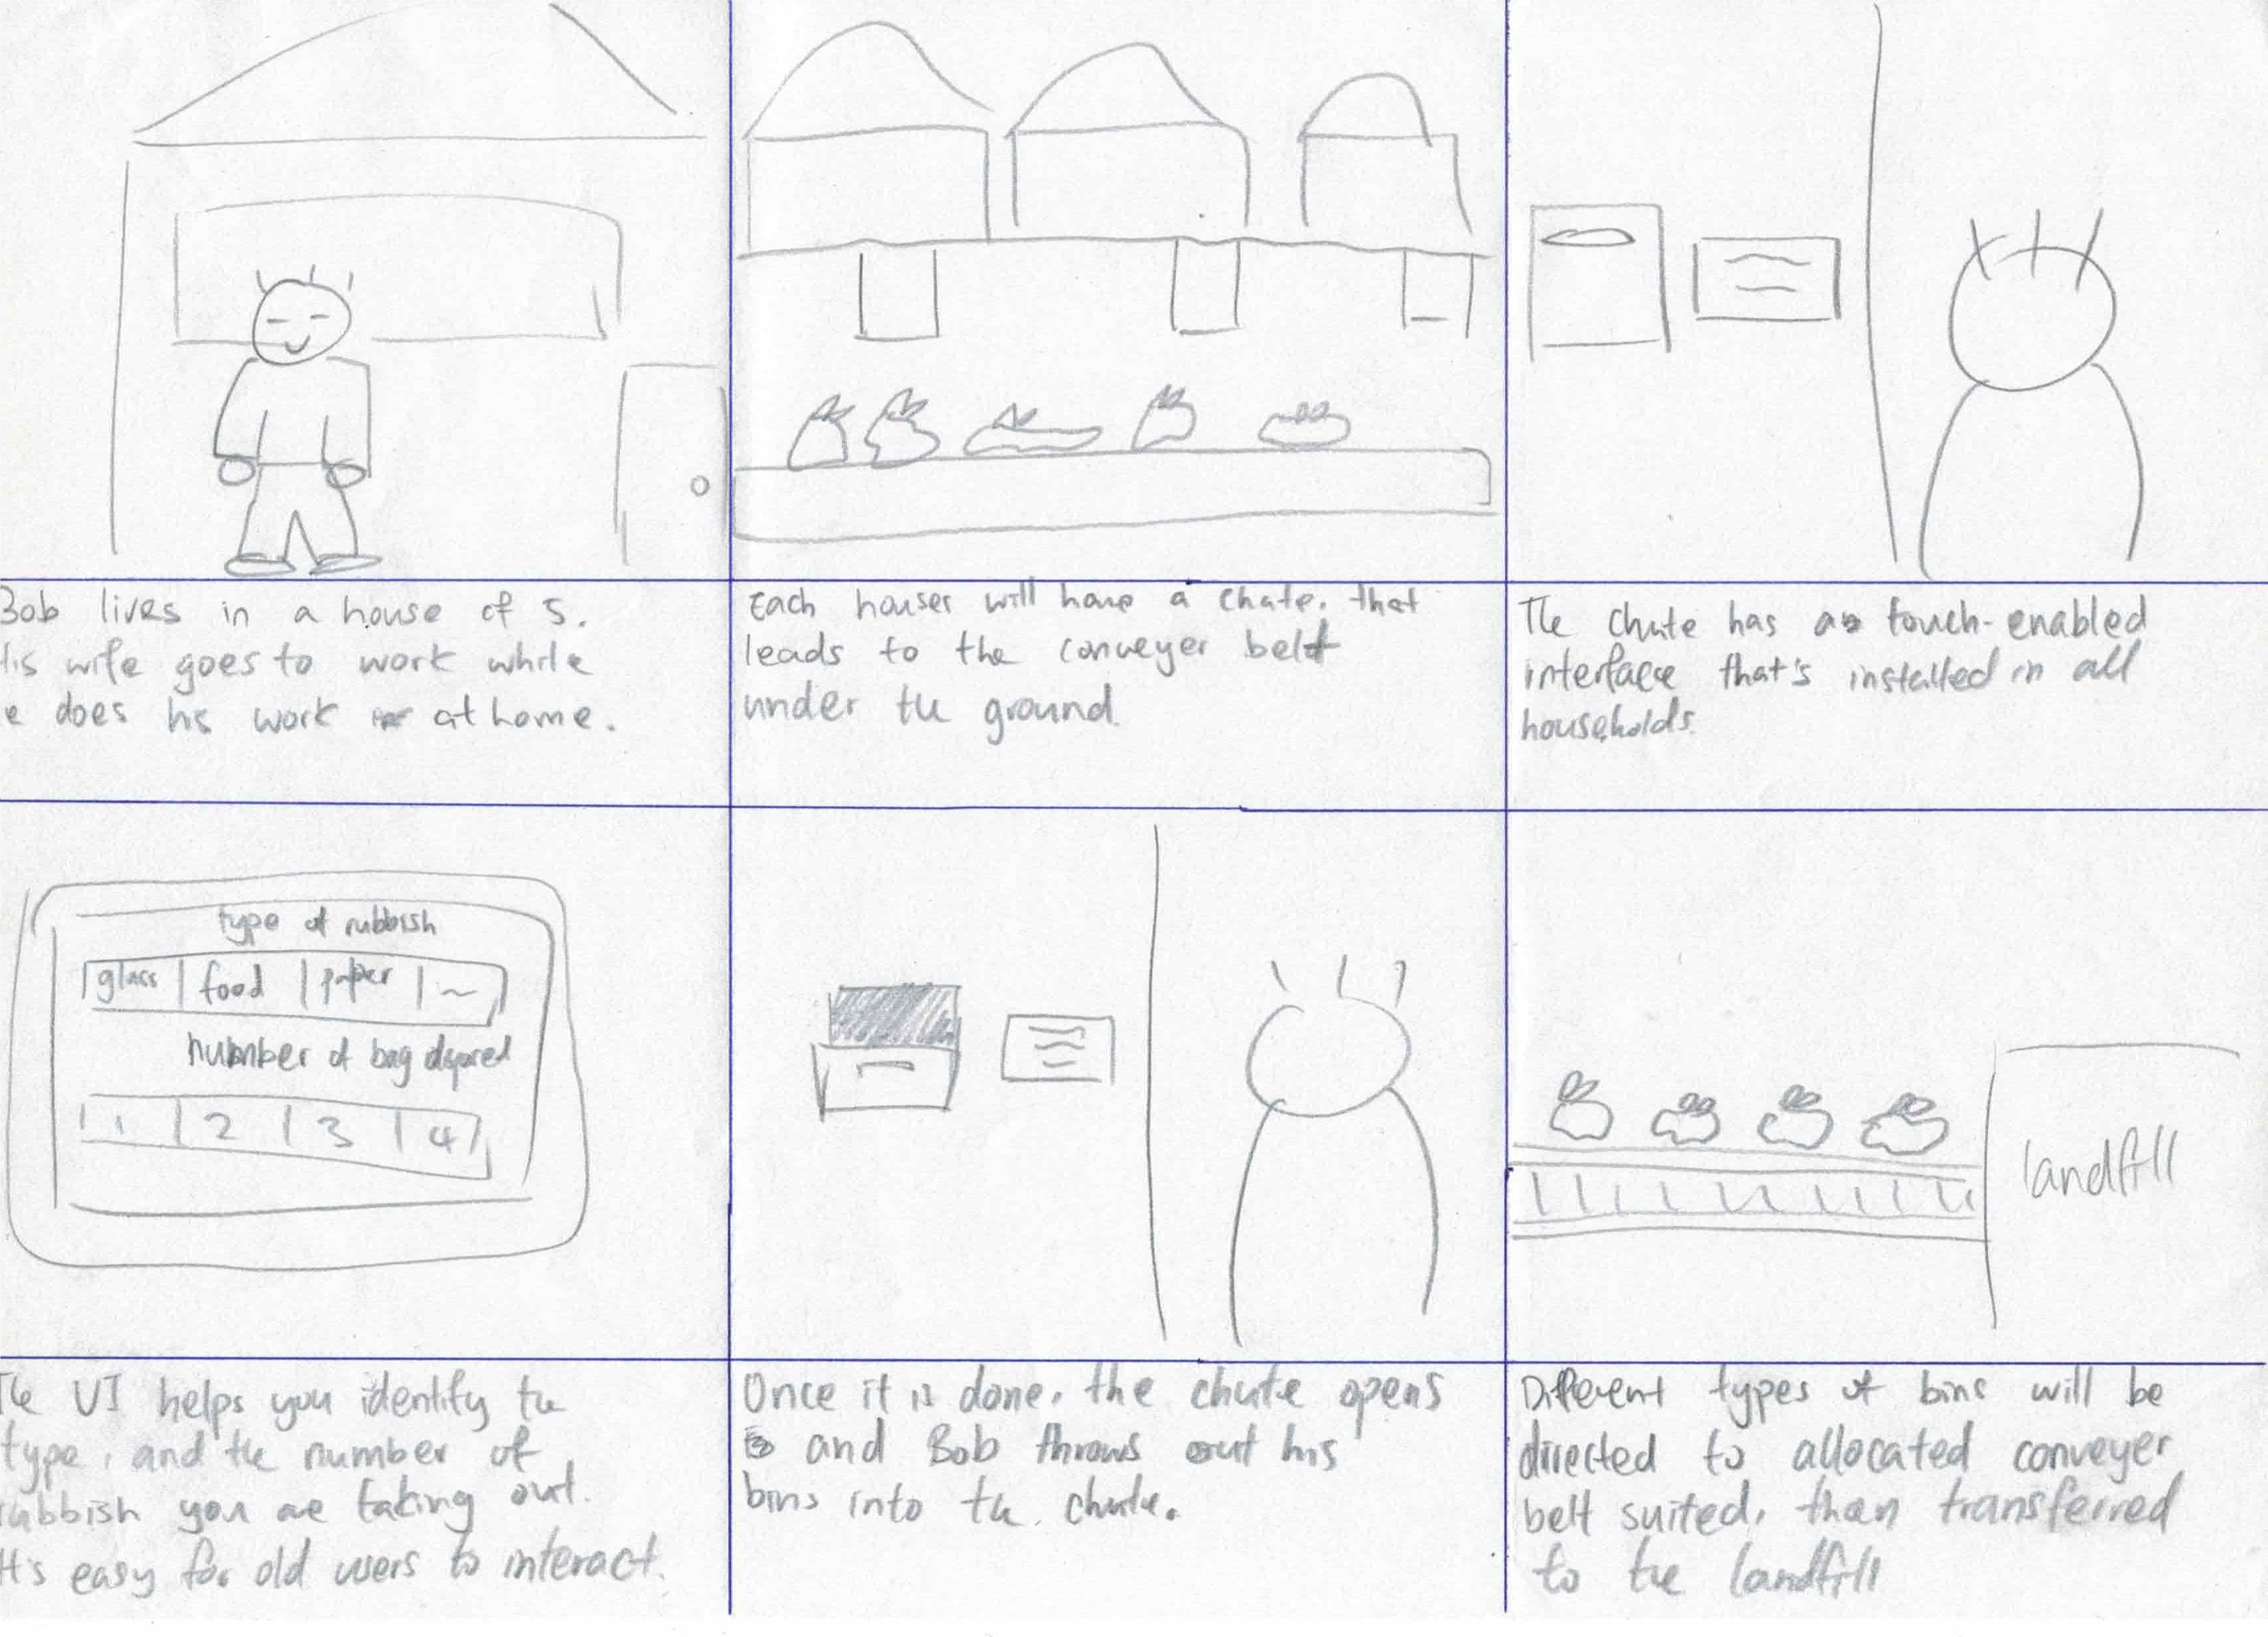 Bob lives in a house of 5.
His wife goes to work while
e does his work at home.
Each houses will have a chute. that
leads to the conveyer belt
under the ground.
The chute has a touch-enabled
interface that's installed in all
households.
type of rubbish
glass food paper ~
number of bag disposed
1 2 3 4
landfill
The UI helps you identify the
type, and the number of
rubbish you are taking out.
It's easy for old users to interact.
Once it is done, the chute opens
and Bob throws out his
bins into the chute.
Different types of bins will be
directed to allocated conveyer
belt suited, than transferred
to the landfill